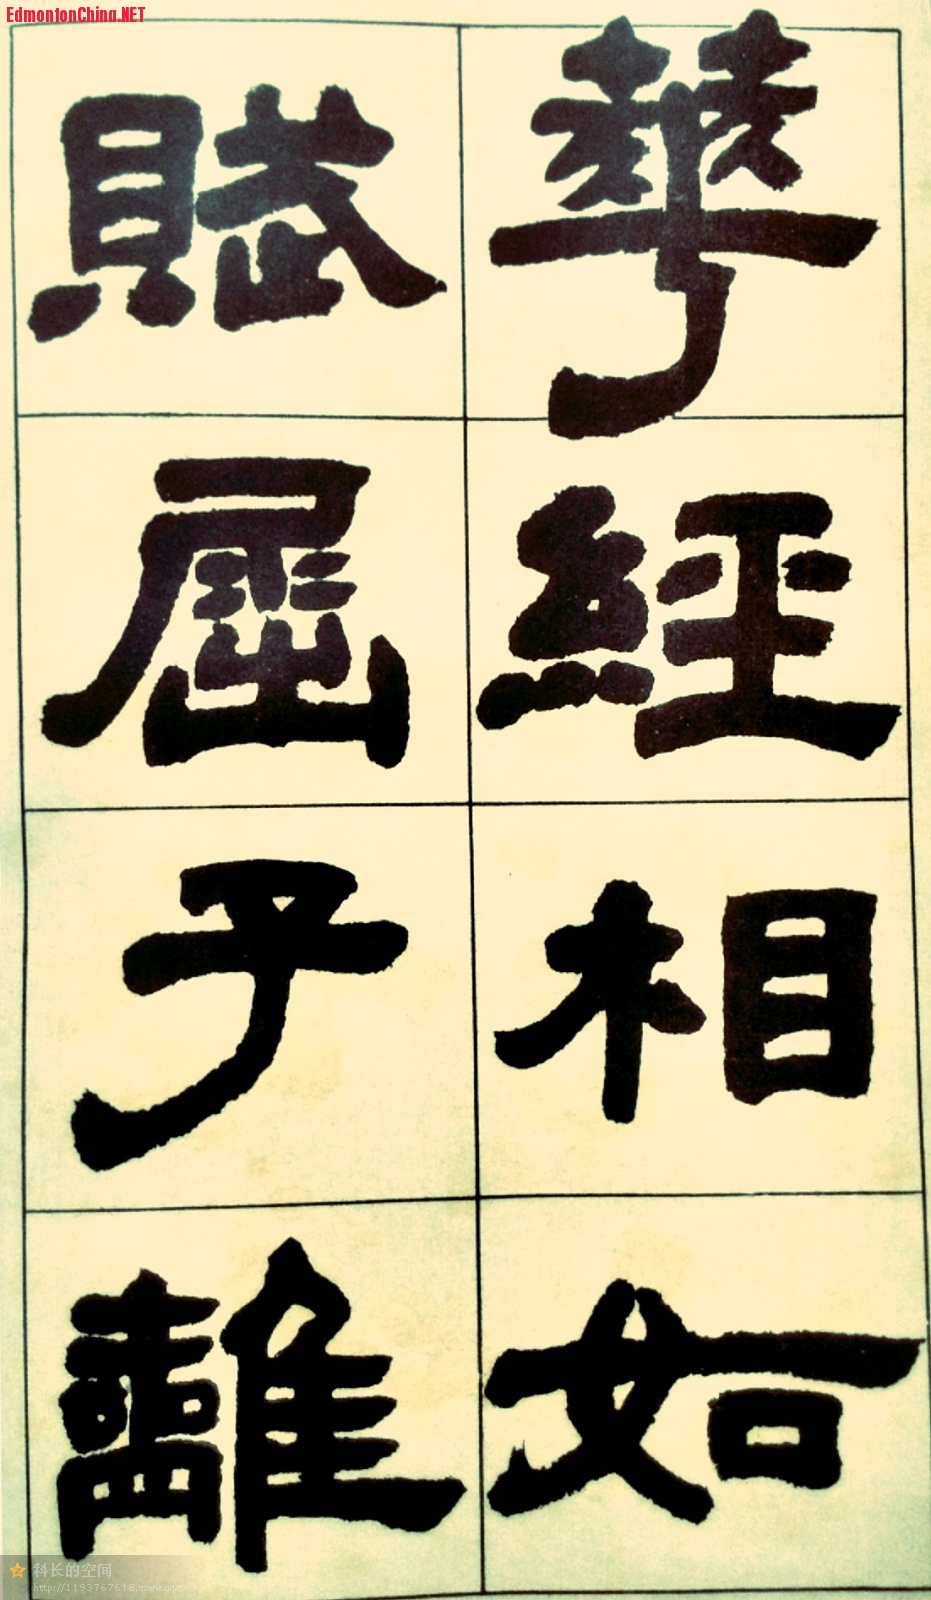 EdmontonChina.NET
華經相如
賦屈子離
科长的空间
http://1193767618.qzone.qq.com